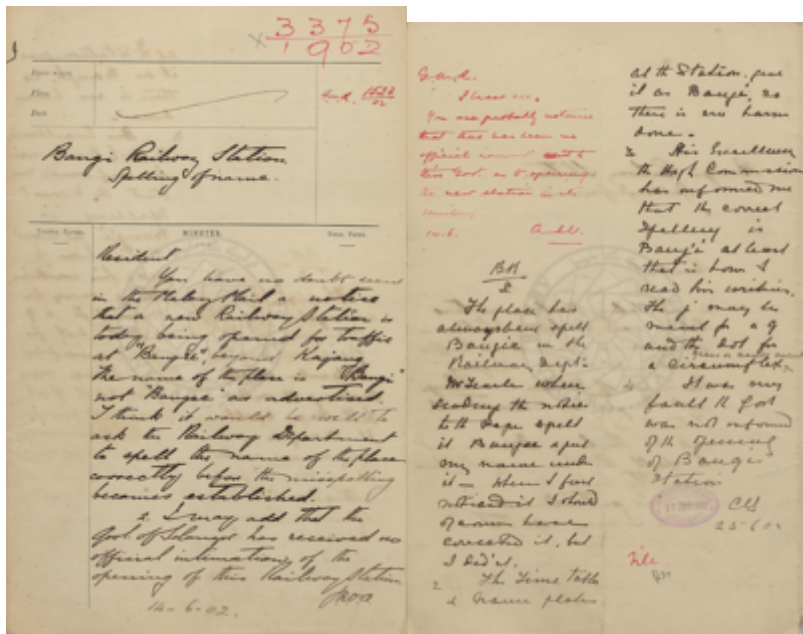 3375
1902
Bangi Railway Station
Spelling of name.
MINUTES.
Resident
You have no doubt seen
in the Malay Mail a notice
that a new Railway Station is
today being opened for traffic
at "Bangee", beyond Kajang.
The name of the place is "Bangi"
not "Bangee" as advertised.
I think it would be well to
ask the Railway Department
to spell the name of the place
correctly before the misspelling
becomes established.
2. I may add that the
Govt of Selangor has received no
official intimation of the
opening of this Railway Station
14-6-02.
You are probably not aware
that there has been no
official
this Govt. as to opening
new station in
The place has
always been spelt
Bangie in the
Railway Dept.
when
sending the notice
to the spelt
it Bangee & put
my name under
it - when I first
noticed it I should
of course have
corrected it, but
I didn't.
2 The Time Table
& name plates
at the Station, give
it as Bangi, so
there is no harm
done.
3 His Excellency
the High Commissioner
has informed me
that the correct
Spelling is
Bangi at least
that is how I
read his writing.
The j may be
meant for a g
and the dot for
a circumflex.
It was my
fault the Govt
was not informed
of the opening
of Bangi
Station
25.6.02
File